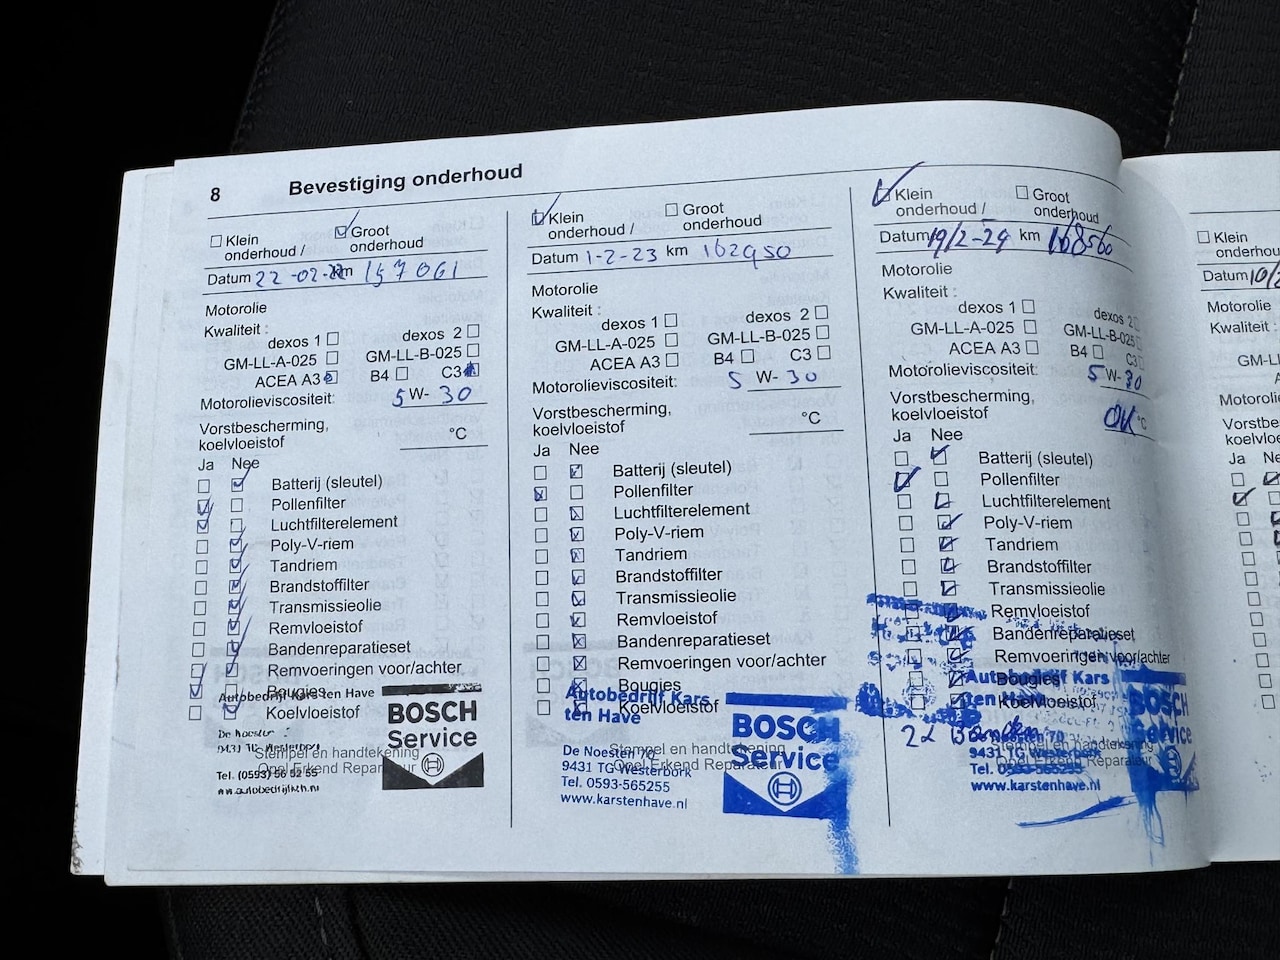 8 Bevestiging onderhoud
Klein onderhoud / Groot onderhoud
Datum 22-02-22 km 157061
Motorolie
Kwaliteit :
dexos 1 dexos 2
GM-LL-A-025 GM-LL-B-025
ACEA A3 B4 C3
Motorolieviscositeit: 5 W- 30
Vorstbescherming,
koelvloeistof °C
Ja Nee
Batterij (sleutel)
Pollenfilter
Luchtfilterelement
Poly-V-riem
Tandriem
Brandstoffilter
Transmissieolie
Remvloeistof
Bandenreparatieset
Remvoeringen voor/achter
Bougies
Koelvloeistof
Autobedrijf Kars ten Have
9431 TG Westerbork
Stempel en handtekening
Opel Erkend Reparateur
BOSCH
Service
Klein onderhoud / Groot onderhoud
Datum 1-2-23 km 162950
Motorolie
Kwaliteit :
dexos 1 dexos 2
GM-LL-A-025 GM-LL-B-025
ACEA A3 B4 C3
Motorolieviscositeit: 5 W- 30
Vorstbescherming,
koelvloeistof °C
Ja Nee
Batterij (sleutel)
Pollenfilter
Luchtfilterelement
Poly-V-riem
Tandriem
Brandstoffilter
Transmissieolie
Remvloeistof
Bandenreparatieset
Remvoeringen voor/achter
Bougies
Koelvloeistof
Autobedrijf Kars
ten Have
De Noesten 70
9431 TG Westerbork
Tel. 0593-565255
www.karstenhave.nl
Stempel en handtekening
Opel Erkend Reparateur
BOSCH
Service
Klein onderhoud / Groot onderhoud
Datum 19/2-24 km 168560
Motorolie
Kwaliteit :
dexos 1 dexos 2
GM-LL-A-025 GM-LL-B-025
ACEA A3 B4 C3
Motorolieviscositeit: 5 W- 30
Vorstbescherming,
koelvloeistof OK °C
Ja Nee
Batterij (sleutel)
Pollenfilter
Luchtfilterelement
Poly-V-riem
Tandriem
Brandstoffilter
Transmissieolie
Remvloeistof
Bandenreparatieset
Remvoeringen voor/achter
Bougies
Koelvloeistof
2x Banden
Autobedrijf Kars
ten Have
De Noesten 70
9431 TG Westerbork
Tel. 0593-565255
www.karstenhave.nl
Stempel en handtekening
Opel Erkend Reparateur
BOSCH
Service
Klein
onderhoud
Datum
Motorolie
Kwaliteit :
Ja